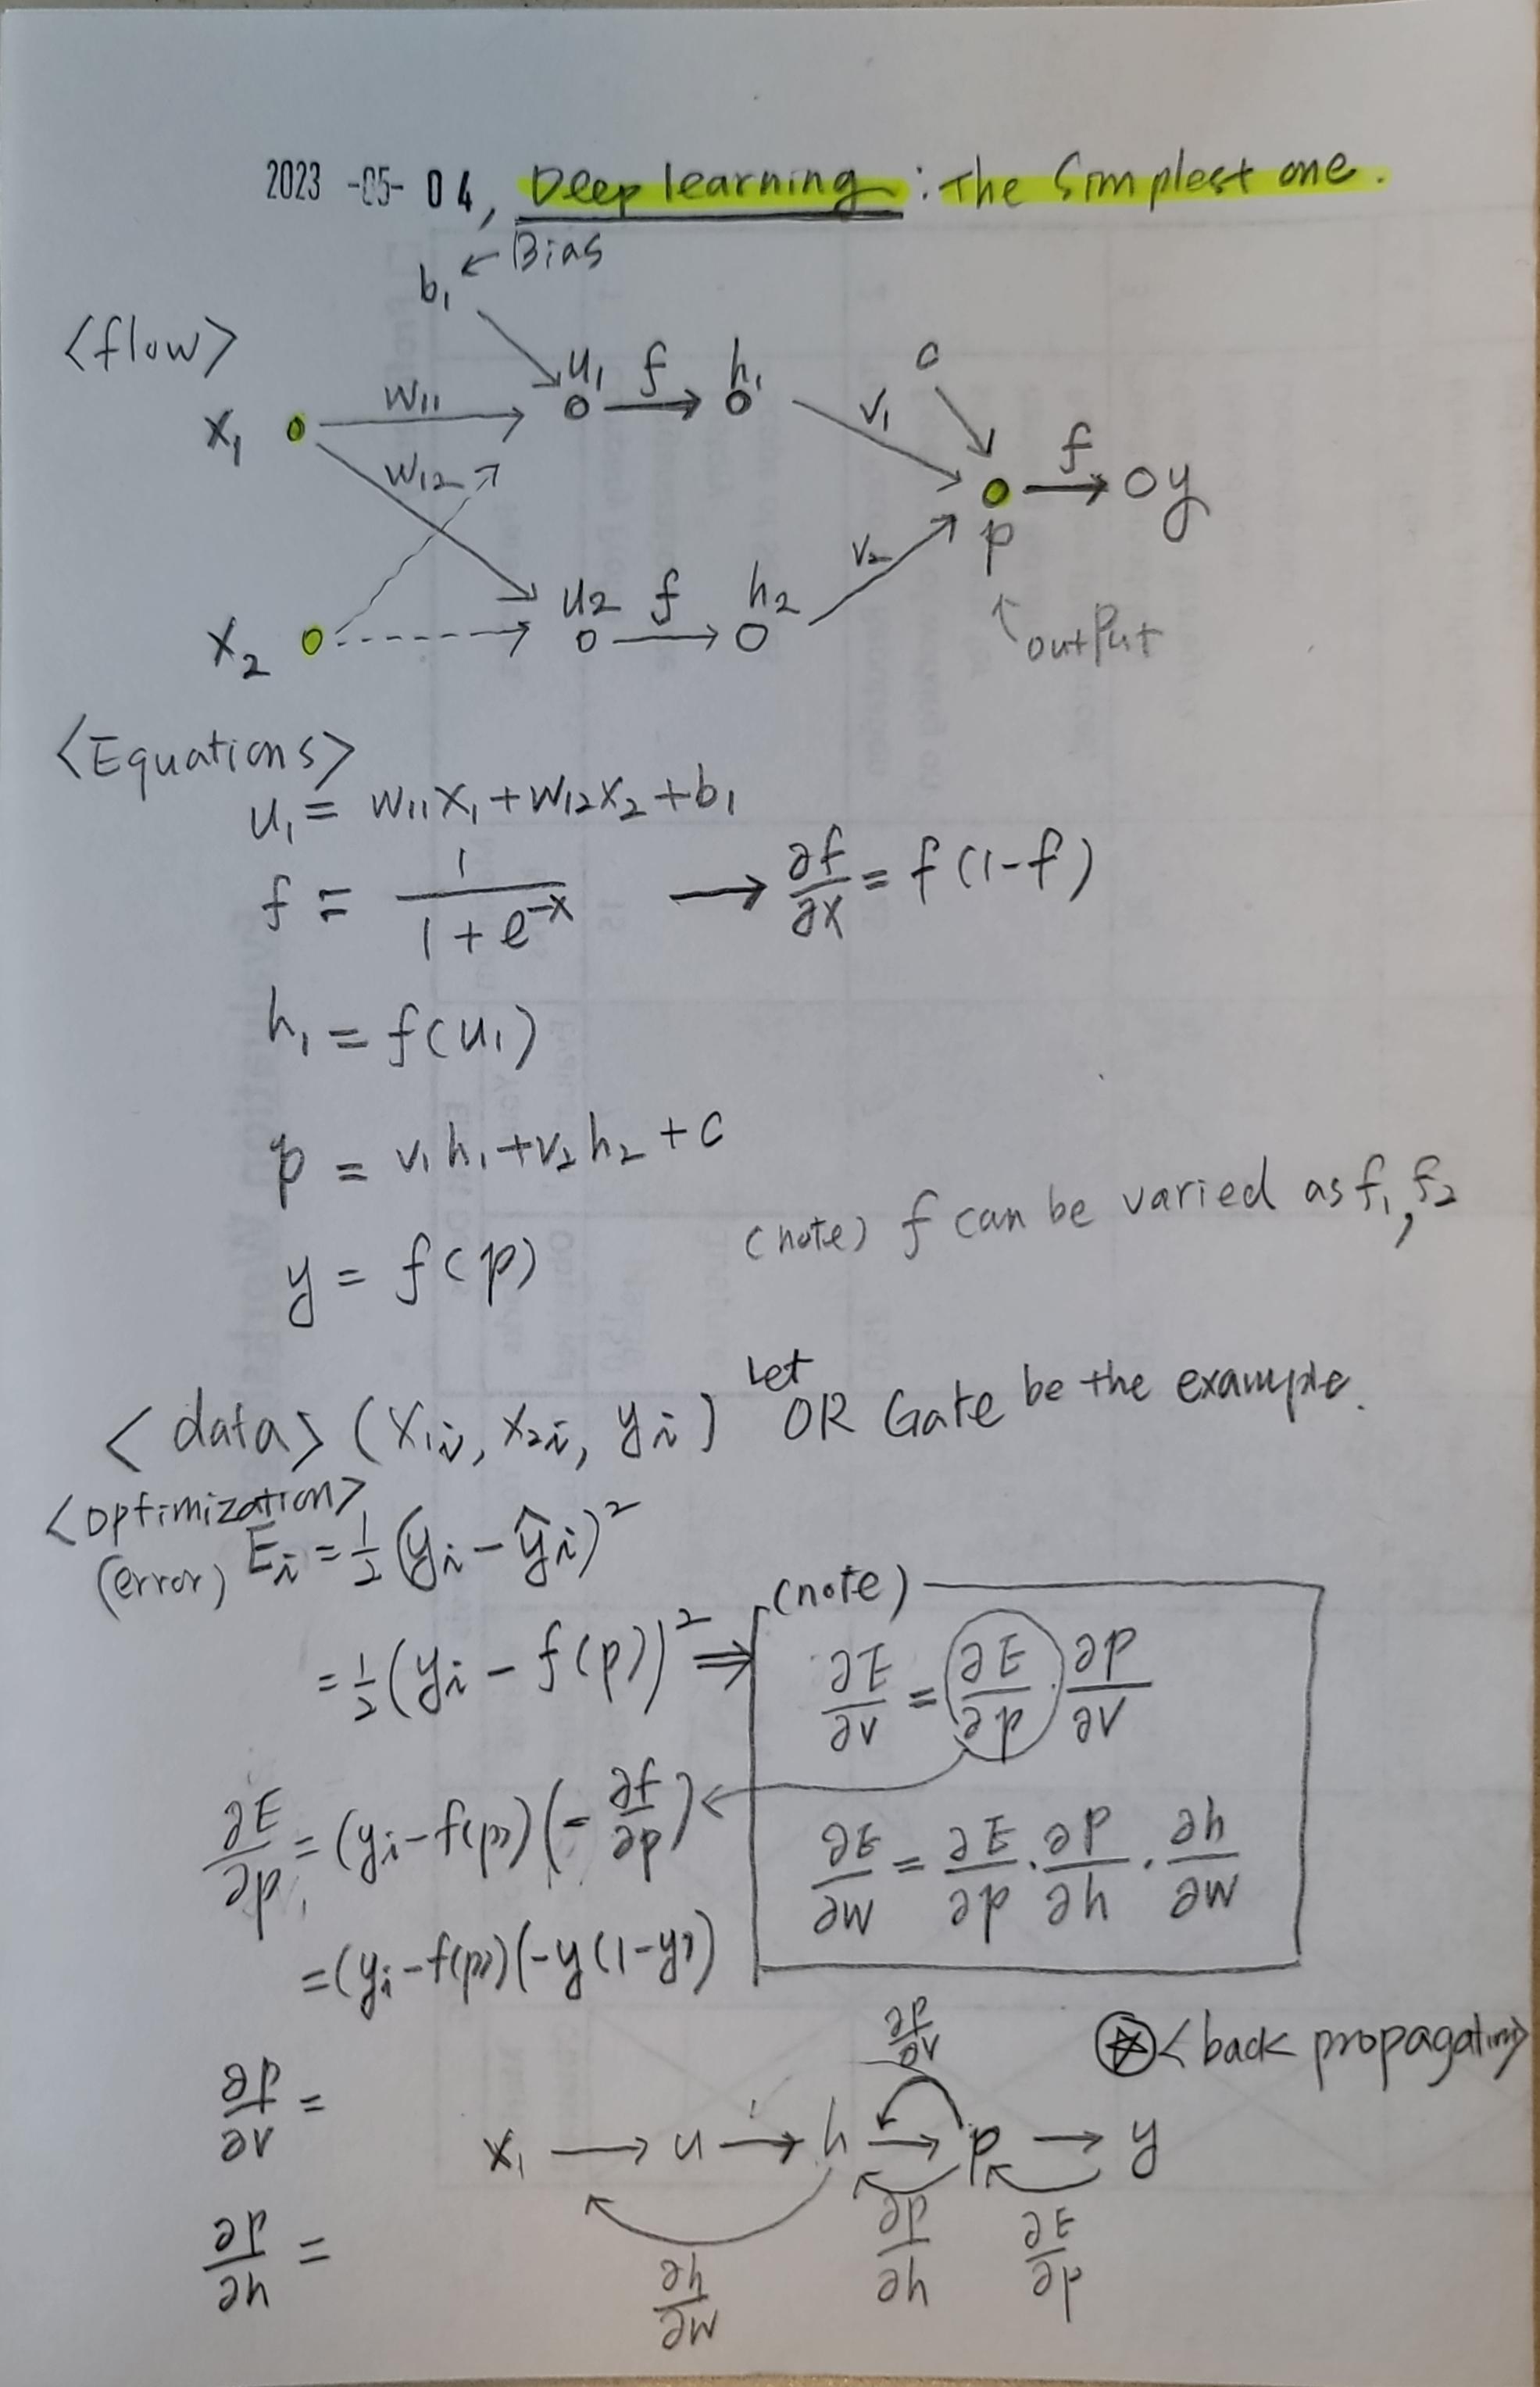 2023 -05- 04, Deep learning : The Simplest one.
b₁ ← Bias
<flow>
x₁ w₁₁ u₁ f h₁ v₁ c
w₁₂ p f y
x₂ u₂ f h₂ v₂
↑ output
<Equations>
u₁ = w₁₁x₁ + w₁₂x₂ + b₁
f = 1/(1 + e^-x) → ∂f/∂x = f(1-f)
h₁ = f(u₁)
p = v₁h₁ + v₂h₂ + c
(note) f can be varied as f₁, f₂
y = f(p)
<data> (x₁ᵢ, x₂ᵢ, yᵢ) Let OR Gate be the example.
<optimization>
(error) Eᵢ = 1/2 (yᵢ - ŷᵢ)²
= 1/2 (yᵢ - f(p))² ⇒
(note)
∂E/∂v = ∂E/∂p · ∂p/∂v
∂E/∂w = ∂E/∂p · ∂p/∂h · ∂h/∂w
∂E/∂p = (yᵢ - f(p)) (- ∂f/∂p)
= (yᵢ - f(p)) (-y(1-y))
<back propagation>
∂p/∂v =
∂p/∂v
x₁ → u → h → p → y
∂p/∂h =
∂h/∂w ∂p/∂h ∂E/∂p